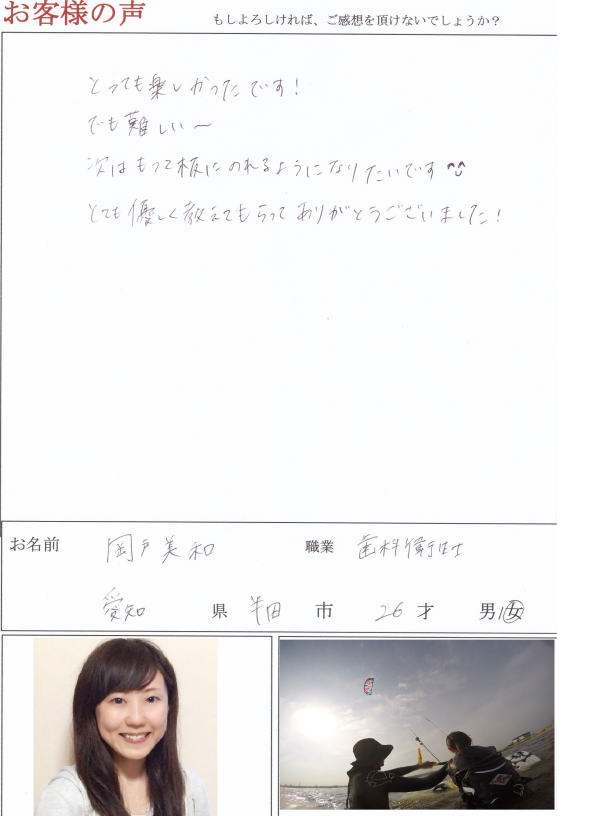 お客様の声 もしよろしければ、ご感想を頂けないでしょうか？
とっても楽しかったです！
でも難しい〜
次はもって板にのれるようになりたいです^^
とても優しく教えてもらってありがとうございました！
お名前 岡戸美和 職業 歯科衛生士
愛知 県 半田 市 26 才 男 女